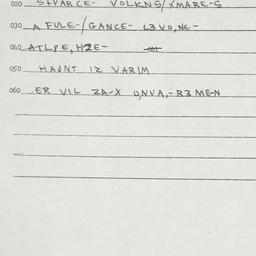 020 STVARCE- VOLKNS/XMARE-S
030 A FULE-/GANCE- L3VO,NE-
060 ATLPE, HZE-
050 HAUNT IZ VARIM
060 ER VIL ZA-X O,NVA,-R3 ME-N